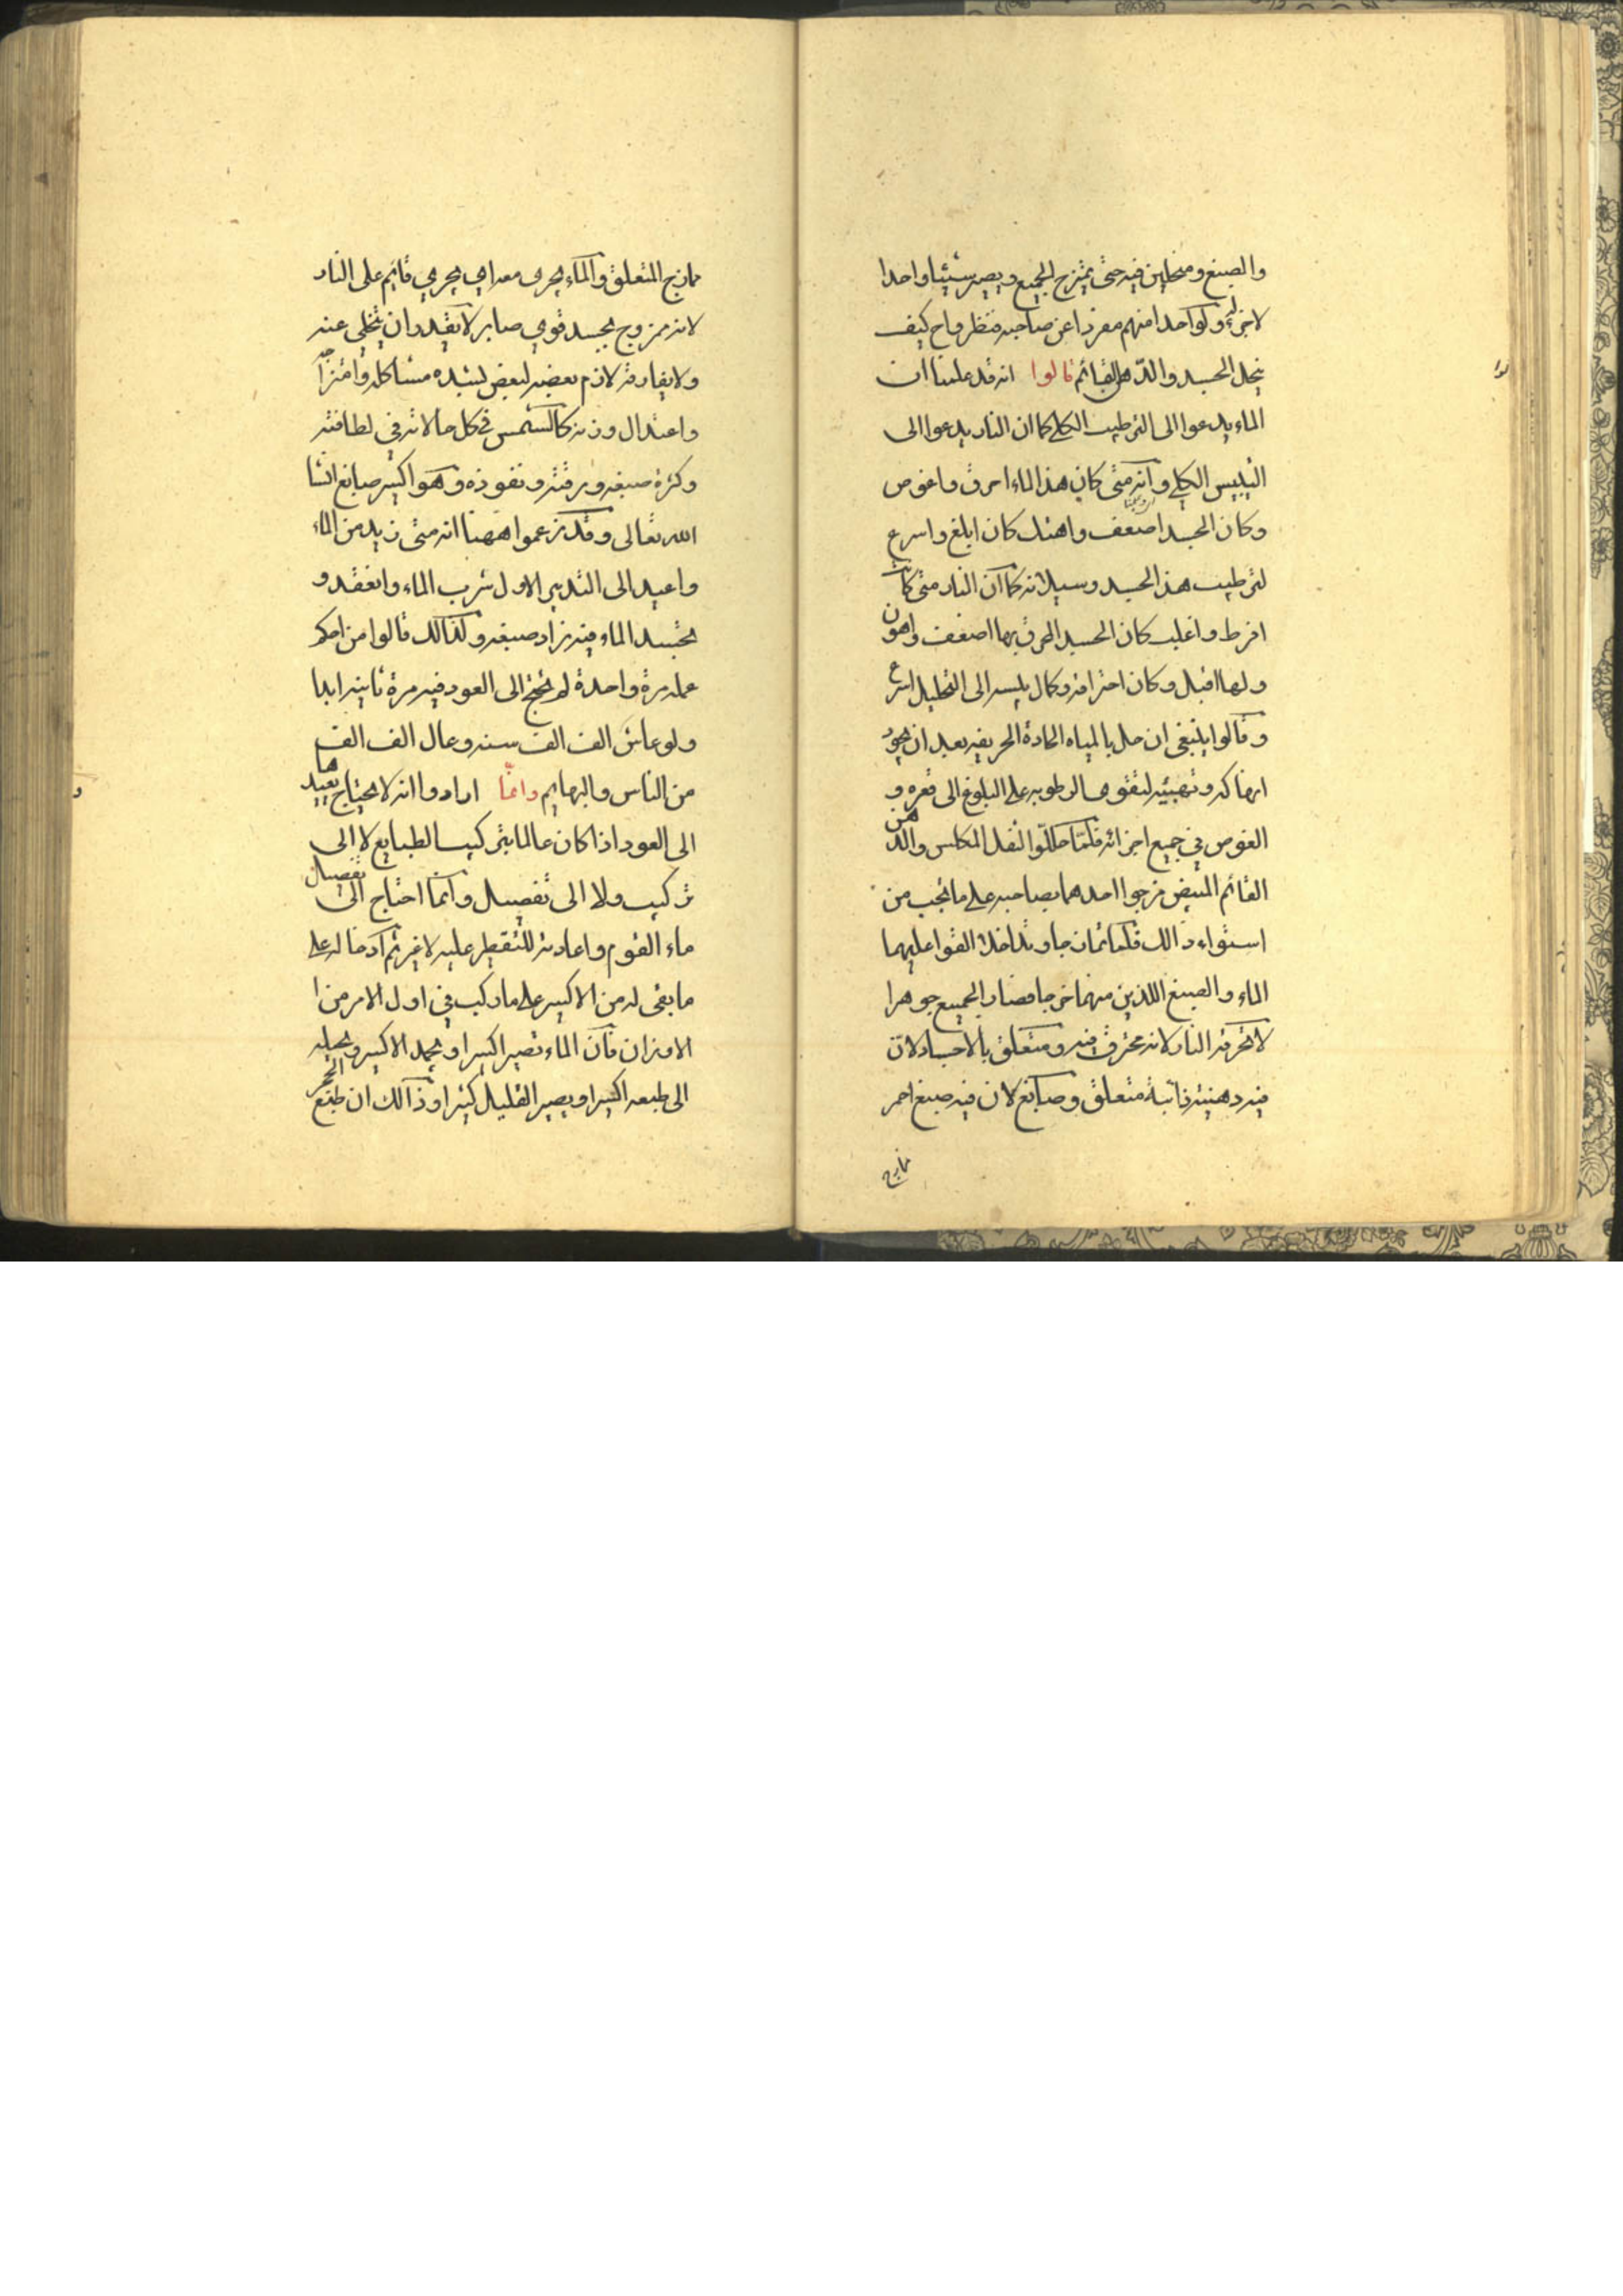 والصبغ ومنحلين فيه حتى يمتزج الجميع ويصير شيئا واحدا
لا جزء ولو احدا منهم مفردا عن صاحبه فنظروا ح كيف
ينحل الجسد والدهن القائم قالوا انه قد علمنا ان
الماء يدعوا الى الترطيب الكلي كما ان النار يدعوا الى
التيبيس الكلي وانه متى كان هذا الماء احرق واغوص
وكان الجسد اضعف واهنك كان ابلغ واسرع
لترطيب هذا الجسد وسيلانه كما ان النار متى كانت
افرط واغلب كان الجسد المحرق بها اضعف واهون
ولها اقبل وكان احتراقه وكمال يبسه الى التحليل اسرع
وقالوا ينبغي ان حل بالمياه الحادة الحريفه بعد ان يجود
انهاكه وتهيئه لتقوي الرطوبه على البلوغ الى قعره و
الغوص في جميع اجزائه فلما حللوا الثفل المكلس والدهن
القائم المبيض مزجوا احدهما بصاحبه على ما يجب من
استواء ذالك فلما تمازجا وتداخلا القوا عليهما
الماء والصبغ اللذين منهما خرجا فصار الجميع جوهرا
لا تحرقه النار لانه محترق فيه ومتعلق بالاجساد لان
فيه دهنيه ثابتة متعلق وصابغ لان فيه صبغ احمر
مازج
مازج المتعلق والماء يجرى معه اي يجري قايم على النار
لانه ممزوج بجسد قوي صابر لا يقدر ان يتخلى عنه
ولا يفارقه لازم بعضه لبعض لشده مشاكله وامتزاجه
واعتدال وزنه كالشمس في كل حالاته في لطافته
وكثرة صبغه ورقته ونفوذه وهو اكسير صابغ انشا
الله تعالى وقد زعموا ههنا انه متى زيد من الماء
واعيد الى التدبير الاول شرب الماء وانعقد و
بجسد الماء فيه زاد صبغه ولذالك قالوا من احكم
عمله مرة واحدة لم يحتج الى العود فيه مرة ثانيه ابدا
ولو عاش الف الف سنه وعال الف الف
من الناس والبهايم وانما ارادوا انه لا يحتاج بعدها
الى العود اذا كان عالما بتركيب الطبايع لا الى
تركيب ولا الى تفصيل وانما احتاج الى تفصيل
ماء القوم واعادته للتقطير عليه لا غير ثم ادخاله على
ما بقى له من الاكسير على ما ركب في اول الامر من
الاوزان فان الماء تصير اكسيرا ويجمد الاكسير ويحيله
الى طبعه اكسيرا ويصير القليل كثيرا وذالك ان طبع الحجر